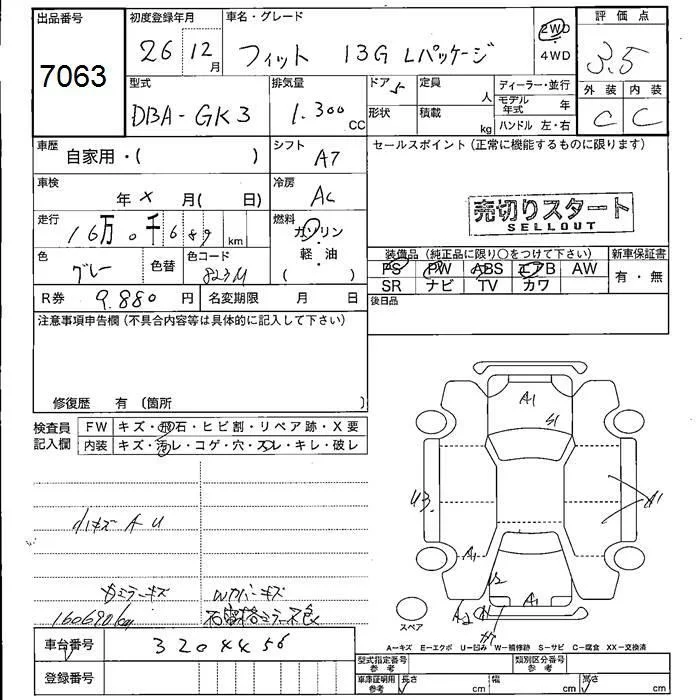 出品番号 初度登録年月 車名・グレード 2WD 評価点
7063 26 12月 フィット 13G Lパッケージ 4WD 3.5
型式 排気量 ドア 5 定員 人 ディーラー・並行 外装 内装
DBA-GK3 1.300 CC 形状 積載 kg モデル年式 年 C C
ハンドル 左・右
車歴 自家用・( ) シフト A7 セールスポイント(正常に機能するものに限ります)
車検 年 × 月( 日) 冷房 AC
売切りスタート
SELLOUT
走行 16万0千689km 燃料 ガソリン・軽・油 ( )
装備品(純正品に限り○をつけて下さい) 新車保証書
色 グレー 色替 色コード 823M
PS PW ABS エアB AW 有・無
SR ナビ TV カワ
R券 9.880円 名変期限 月 日 後日品
注意事項申告欄(不具合内容等は具体的に記入して下さい)
修復歴 有(箇所
検査員記入欄 FW キズ・飛石・ヒビ割・リペア跡・X要
内装 キズ・汚レ・コゲ・穴・スレ・キレ・破レ
A1
S1
U3
A1
A1
A1
小キズ A U
ミラーキズ Wカバーキズ
160690km
スペア
A-キズ E-エクボ U-凹み W-補修跡 S-サビ C-腐食 XX-交換済
車台番号 3204456
登録番号
型式指定番号 参考 類別区分番号 参考
車庫証明用 参考 長さ cm 幅 cm 高さ cm